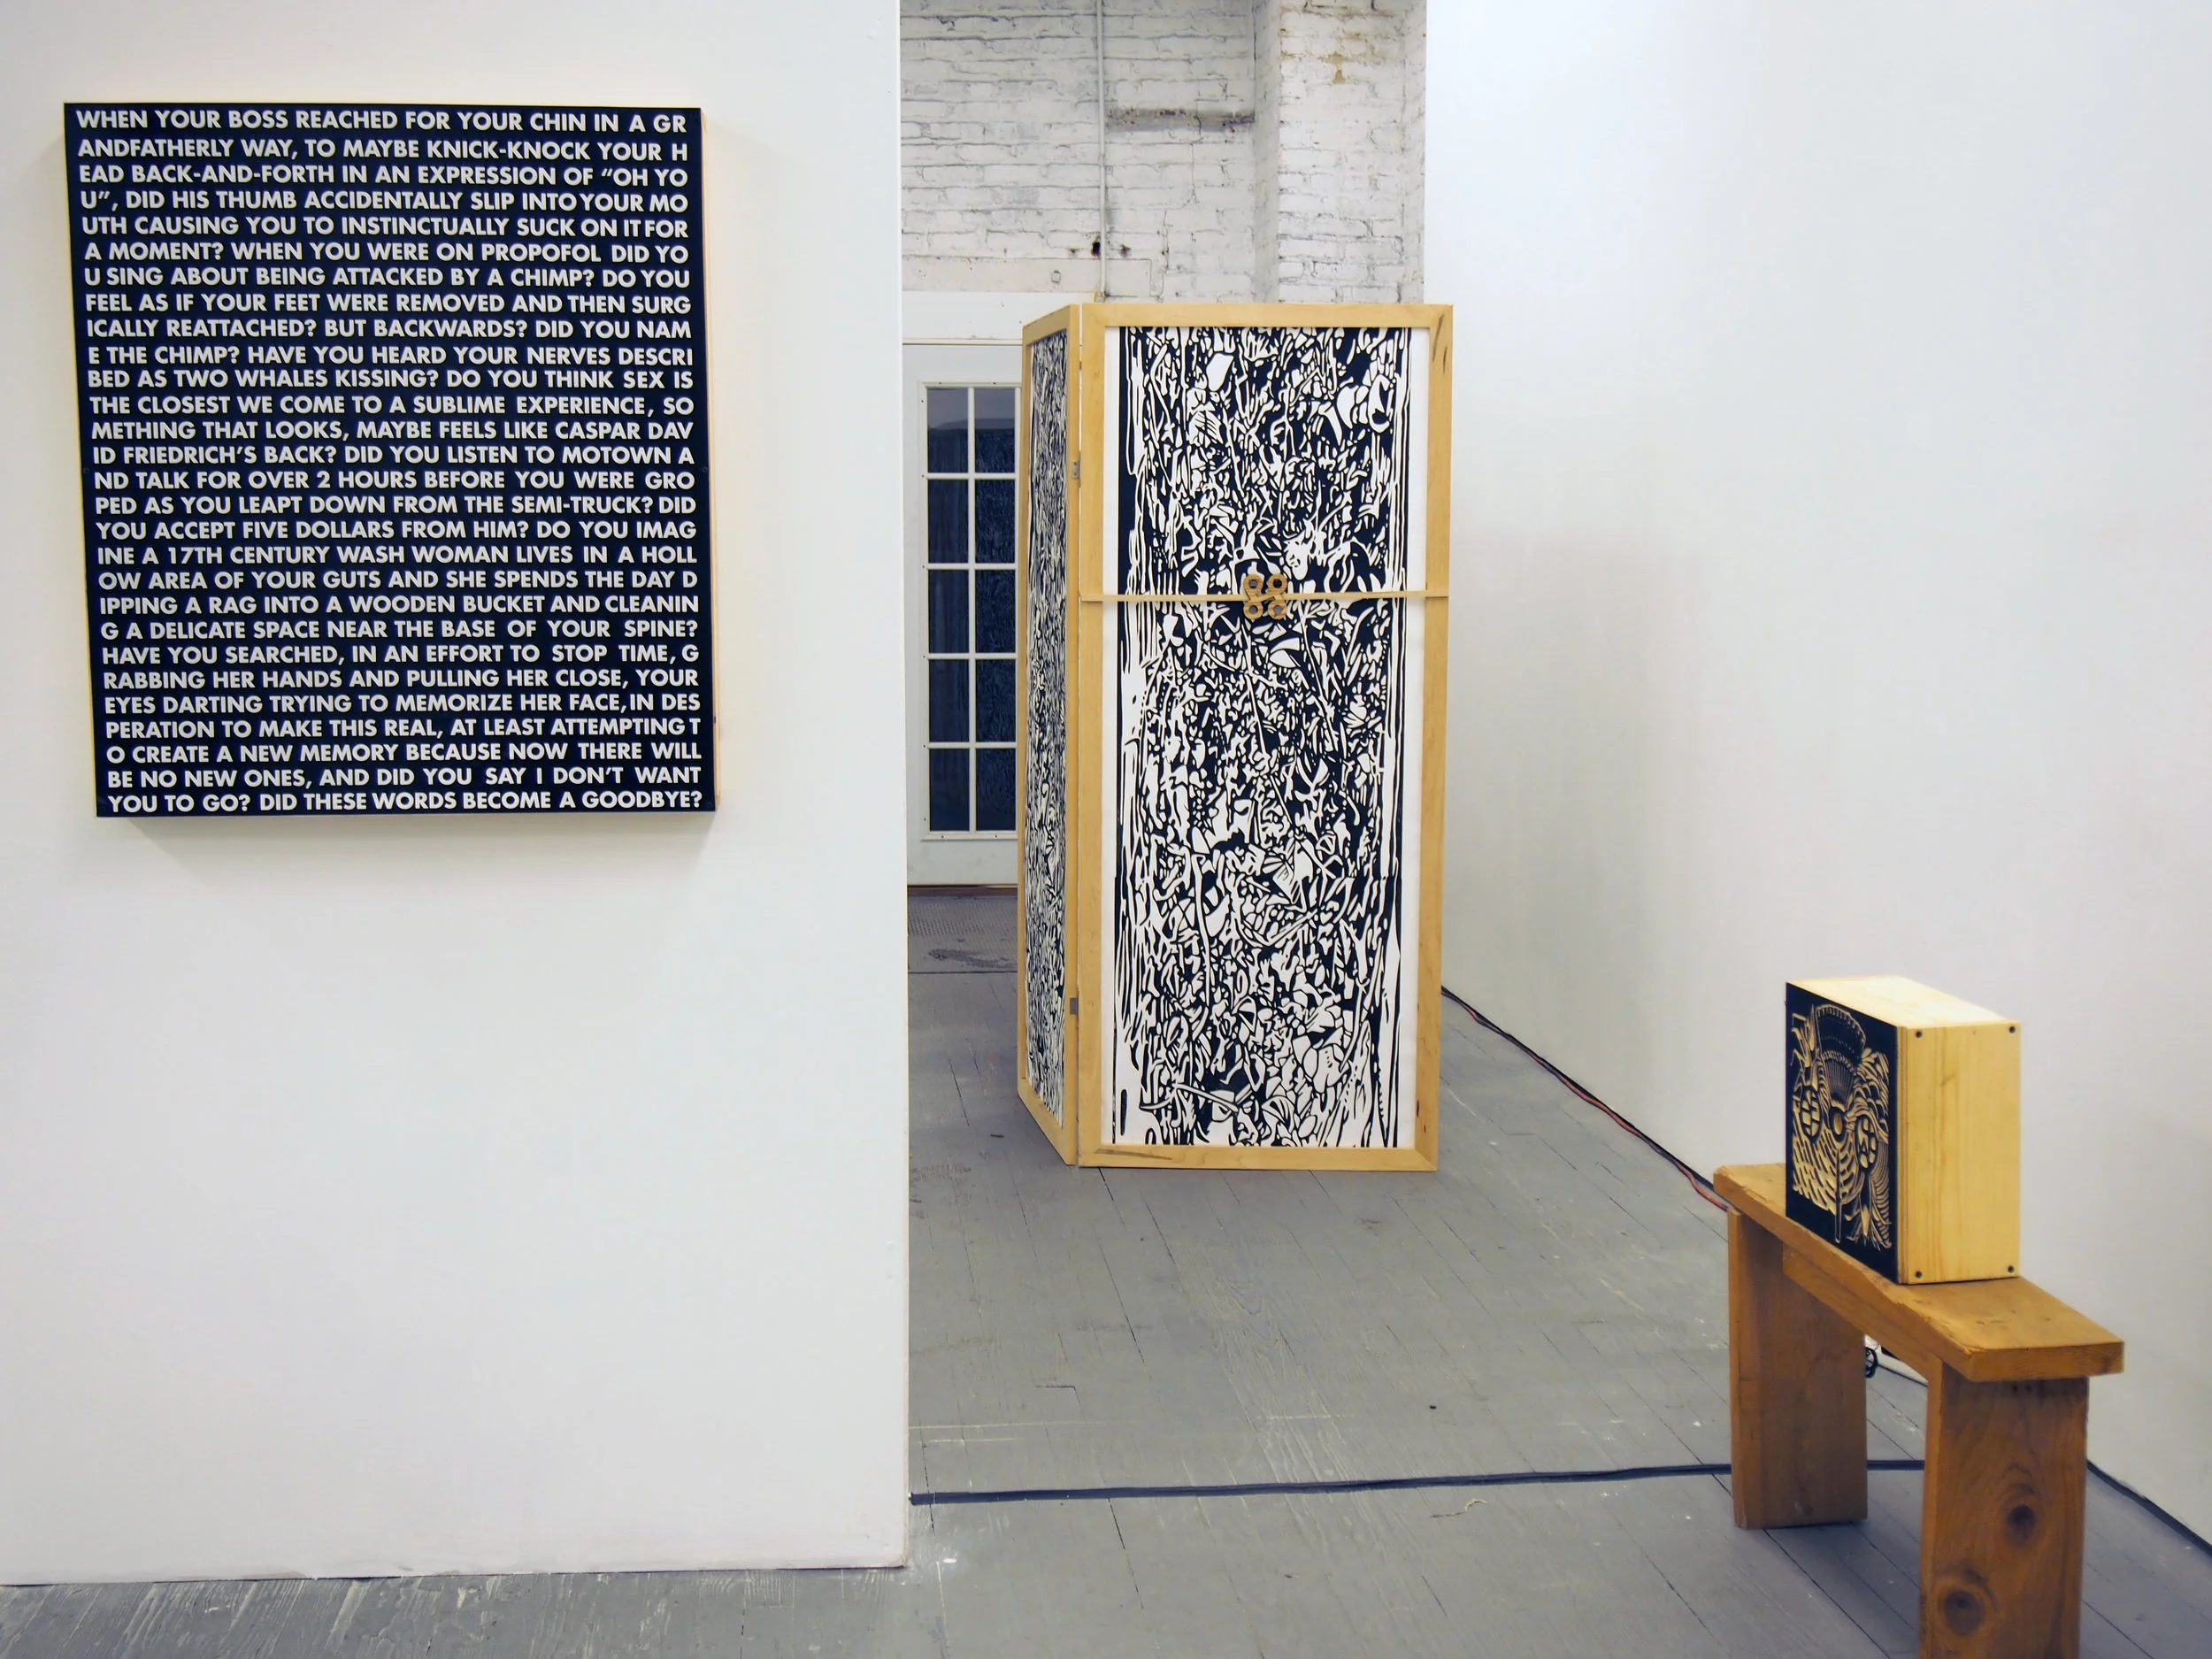 WHEN YOUR BOSS REACHED FOR YOUR CHIN IN A GR
ANDFATHERLY WAY, TO MAYBE KNICK-KNOCK YOUR H
EAD BACK-AND-FORTH IN AN EXPRESSION OF “OH YO
U”, DID HIS THUMB ACCIDENTALLY SLIP INTO YOUR MO
UTH CAUSING YOU TO INSTINCTUALLY SUCK ON IT FOR
A MOMENT? WHEN YOU WERE ON PROPOFOL DID YO
U SING ABOUT BEING ATTACKED BY A CHIMP? DO YOU
FEEL AS IF YOUR FEET WERE REMOVED AND THEN SURG
ICALLY REATTACHED? BUT BACKWARDS? DID YOU NAM
E THE CHIMP? HAVE YOU HEARD YOUR NERVES DESCRI
BED AS TWO WHALES KISSING? DO YOU THINK SEX IS
THE CLOSEST WE COME TO A SUBLIME EXPERIENCE, SO
METHING THAT LOOKS, MAYBE FEELS LIKE CASPAR DAV
ID FRIEDRICH’S BACK? DID YOU LISTEN TO MOTOWN A
ND TALK FOR OVER 2 HOURS BEFORE YOU WERE GRO
PED AS YOU LEAPT DOWN FROM THE SEMI-TRUCK? DID
YOU ACCEPT FIVE DOLLARS FROM HIM? DO YOU IMAG
INE A 17TH CENTURY WASH WOMAN LIVES IN A HOLL
OW AREA OF YOUR GUTS AND SHE SPENDS THE DAY D
IPPING A RAG INTO A WOODEN BUCKET AND CLEANIN
G A DELICATE SPACE NEAR THE BASE OF YOUR SPINE?
HAVE YOU SEARCHED, IN AN EFFORT TO STOP TIME, G
RABBING HER HANDS AND PULLING HER CLOSE, YOUR
EYES DARTING TRYING TO MEMORIZE HER FACE, IN DES
PERATION TO MAKE THIS REAL, AT LEAST ATTEMPTING T
O CREATE A NEW MEMORY BECAUSE NOW THERE WILL
BE NO NEW ONES, AND DID YOU SAY I DON’T WANT
YOU TO GO? DID THESE WORDS BECOME A GOODBYE?